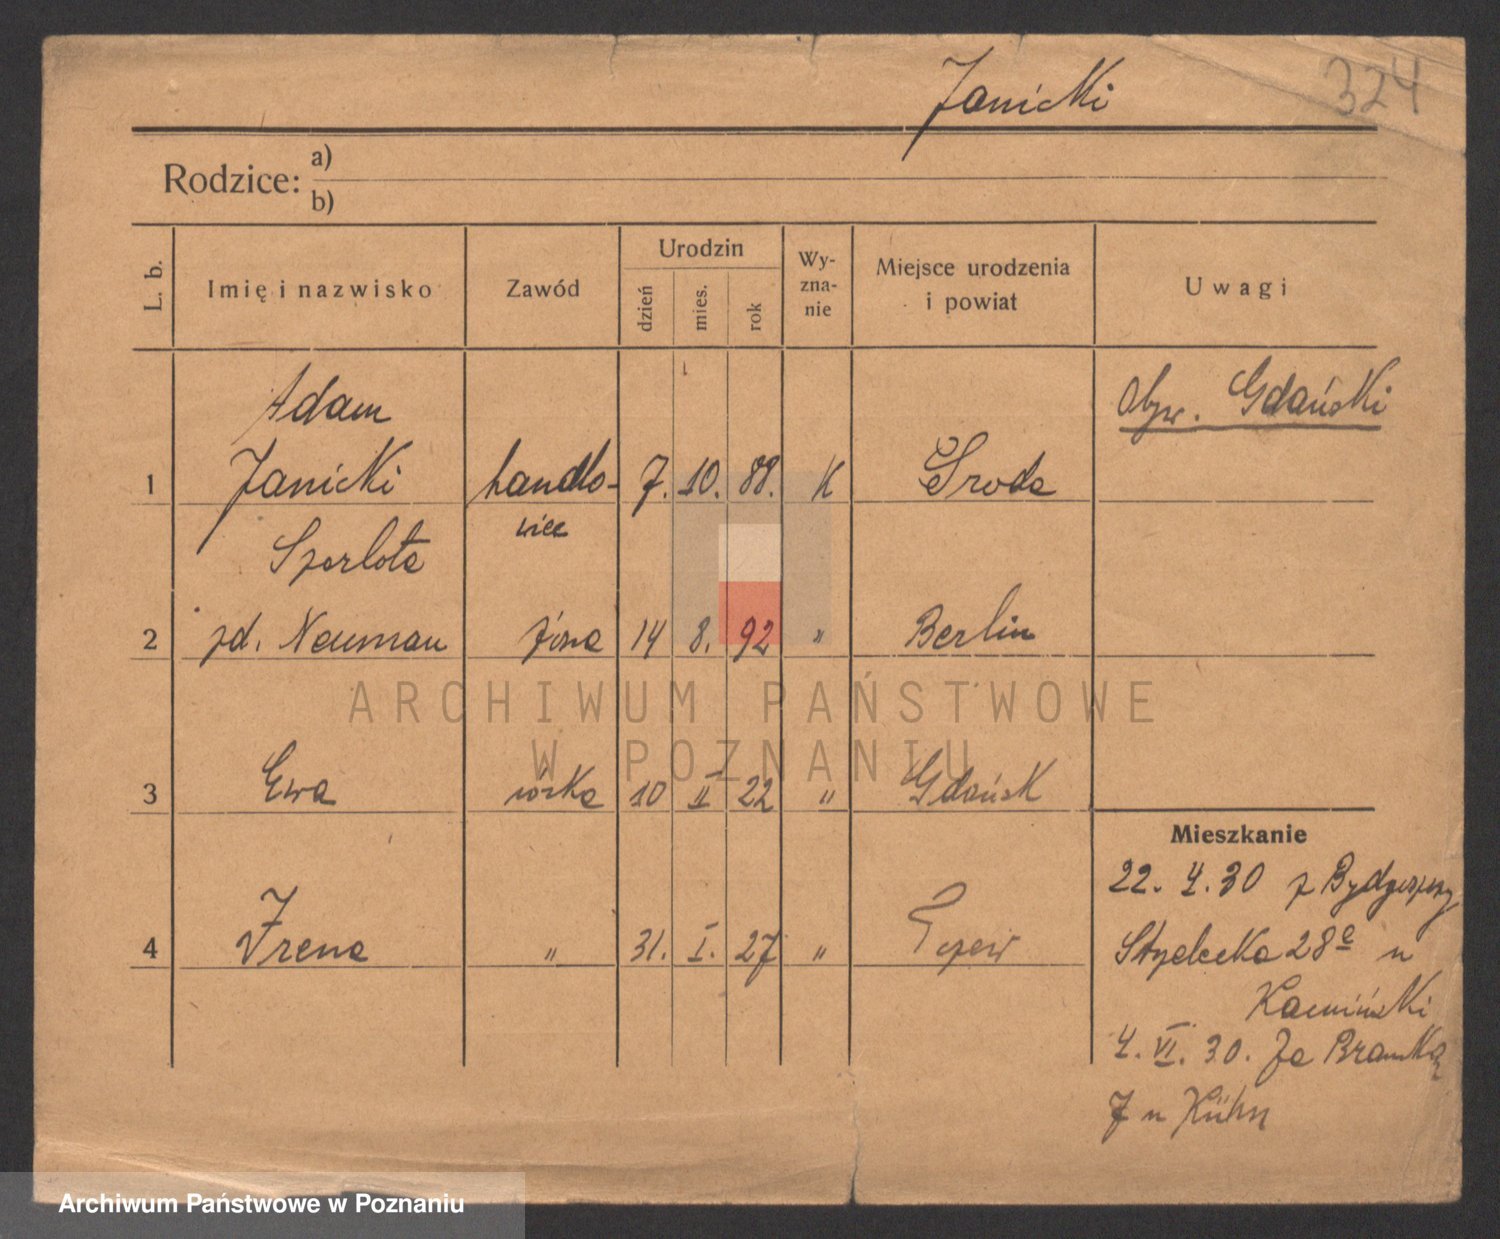 Janicki
324
Rodzice: a)
b)
L. b. Imię i nazwisko Zawód Urodzin dzień mies. rok Wy-zna-nie Miejsce urodzenia i powiat Uwagi
Adam Obyw. Gdański
1 Janicki handlo- 7. 10. 88. K Środa
wiec
Szarlota
2 zd. Neuman żona 14 8. 92 " Berlin
ARCHIWUM PAŃSTWOWE
W POZNANIU
3 Ewa córka 10 II 22 " Gdańsk
Mieszkanie
22. 4. 30 z Bydgoszczy
4 Irena " 31. I. 27 " Tczew
28 u
Kamiński
4. VI. 30. Za Bramką
7 u Kühn
Archiwum Państwowe w Poznaniu